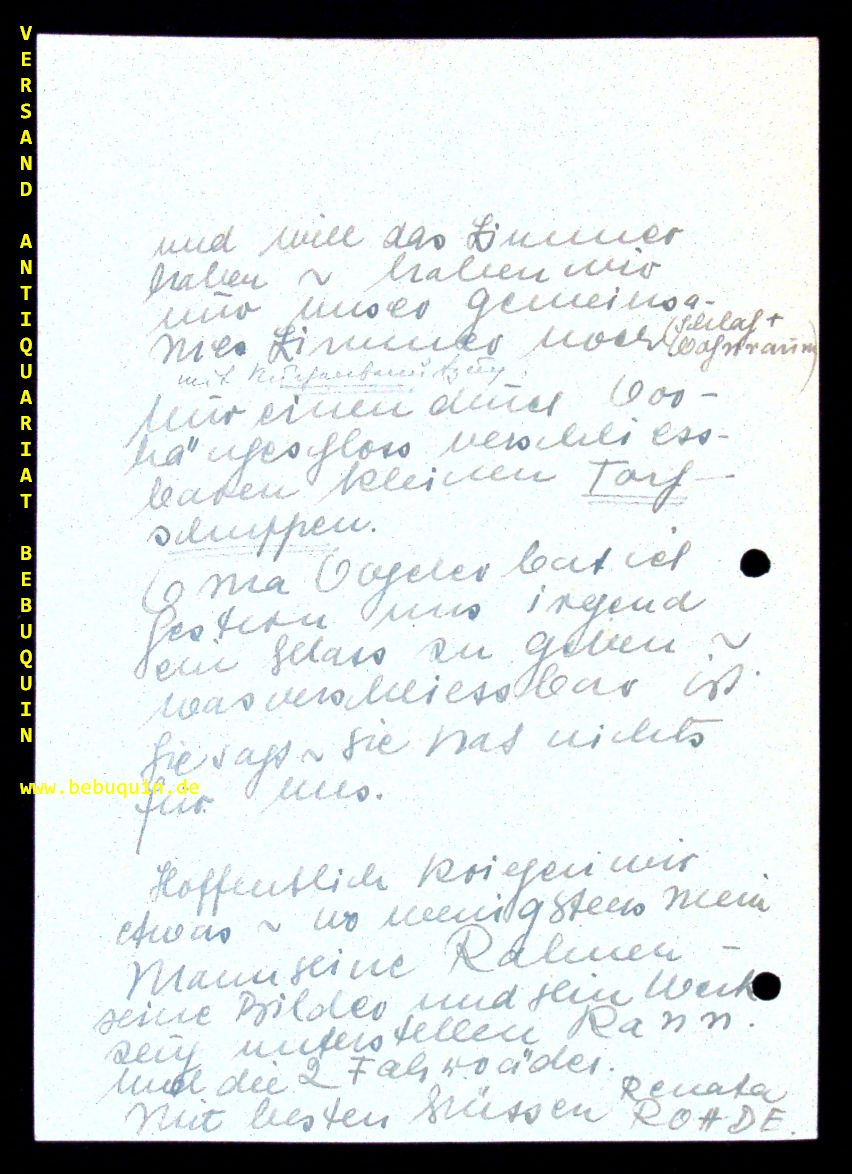 VERSAND ANTIQUARIAT BEBUQUIN
www.bebuquin.de
und will das Zimmer
haben ~ haben wir
nur unser gemeinsa-
mes Zimmer noch (Schlaf +
Wohnraum)
mit Küchenbenützung
Nur einen durch Vor-
hängeschloss verschliess-
baren kleinen Torf-
schuppen.
Oma Vogeler bat ich
gestern uns irgend
ein Gelass zu geben ~
was verschliessbar ist.
Sie sagt ~ Sie hat nichts
für uns.
Hoffentlich kriegen wir
etwas ~ wo wenigstens mein
Mann seine Rahmen -
seine Bilder und sein Werk
zeug unterstellen kann.
Und die 2 Fahrräder.
Mit besten Grüssen Renata
ROHDE.